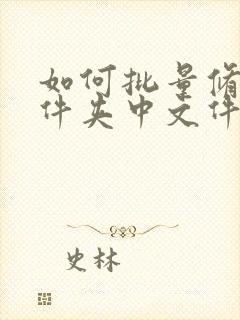 如何批量修
件夹中文件
史林